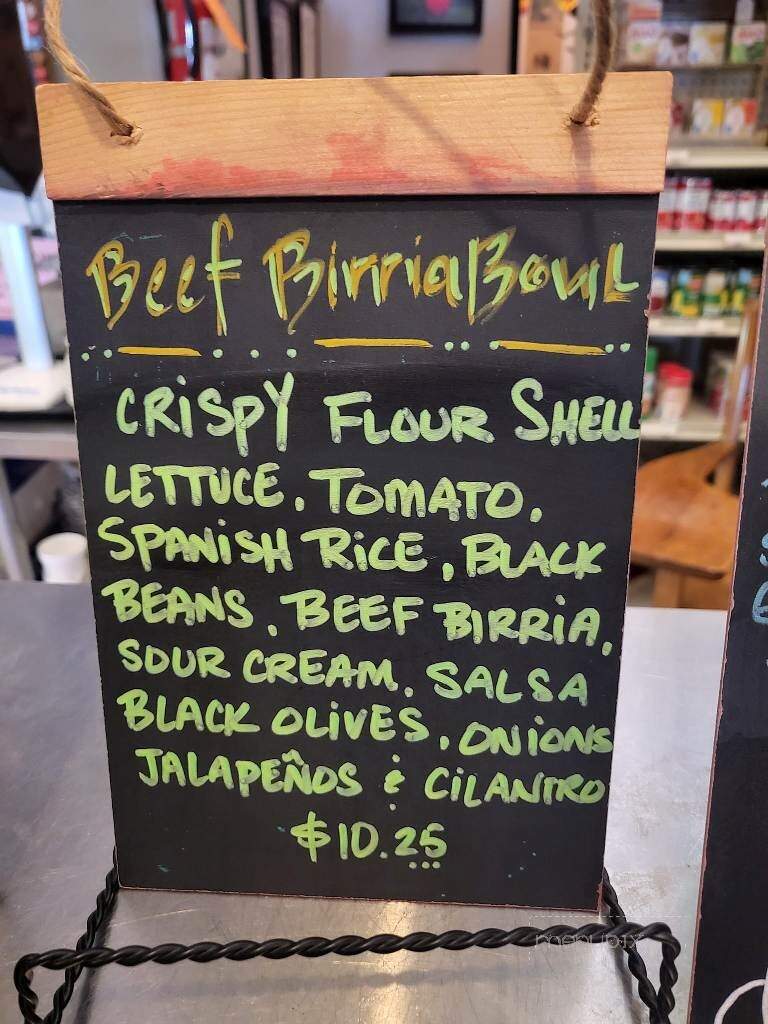 Beef Birria Bowl
CRiSPY FLOUR SHELL
LETTUCE, TOMATO,
SPANiSH RiCE, BLACK
BEANS, BEEF BiRRiA,
SOUR CREAM, SALSA
BLACK OLIVES, ONiONS
JALAPEÑOS & CiLANTRO
$10.25
menupix